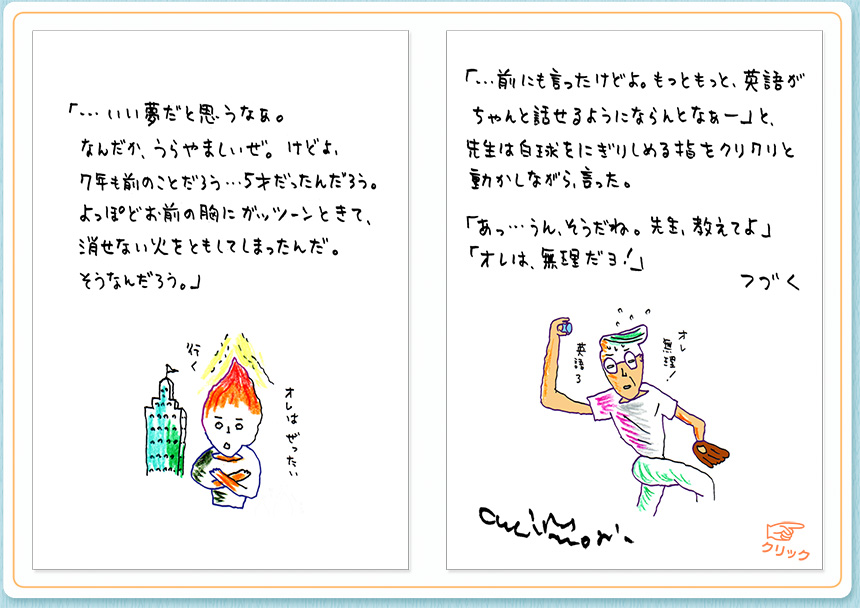 「…いい夢だと思うなぁ。
なんだか、うらやましいぜ。けどよ、
7年も前のことだろう…5才だったんだろう。
よっぽどお前の胸にガッツーンときて、
消せない火をともしてしまったんだ。
そうなんだろう。」
オレは ぜったい
行く
「…前にも言ったけどよ。もっともっと、英語が
ちゃんと話せるようにならんとなぁー」と、
先生は白球をにぎりしめる指をクリクリと
動かしながら、言った。
「あっ…うん、そうだね。先生、教えてよ」
「オレは、無理だヨ!」
つづく
オレ
無理!
英語ろ
クリック